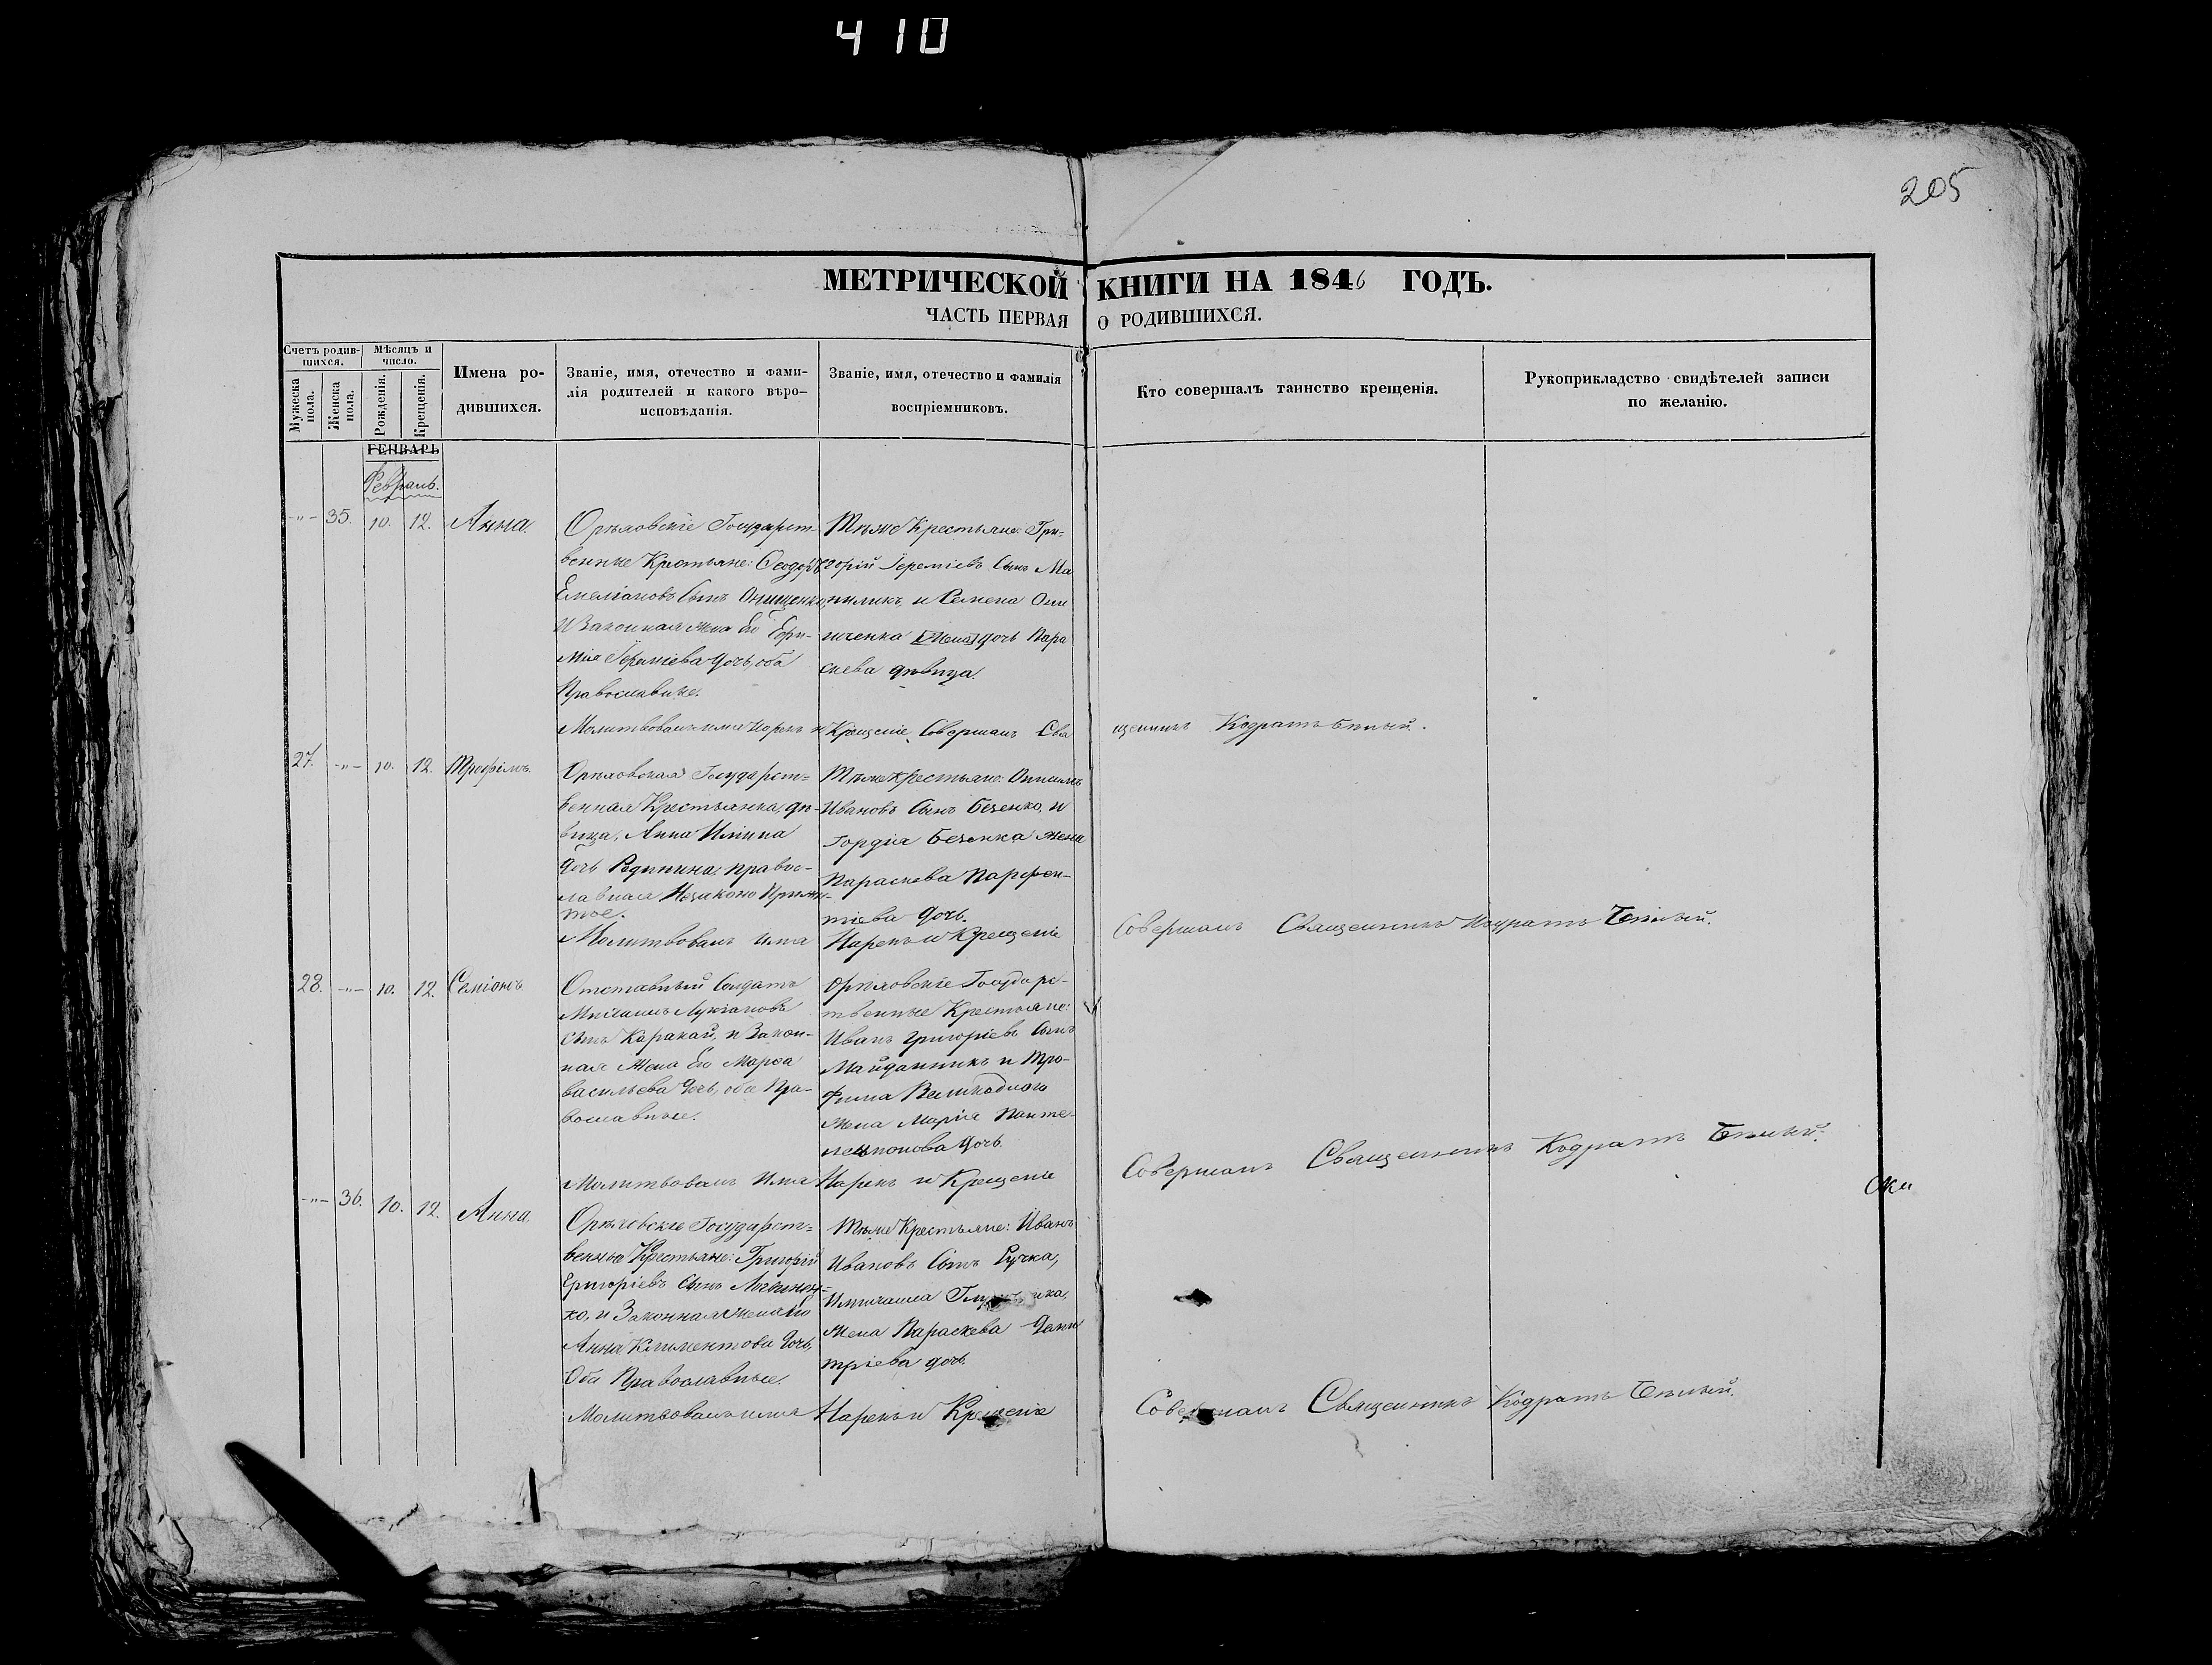 410
205
МЕТРИЧЕСКОЙ КНИГИ НА 1846 ГОДЪ.
ЧАСТЬ ПЕРВАЯ О РОДИВШИХСЯ.
Счетъ родившихся.
Мужеска пола.
Женска пола.
Мѣсяцъ и число.
Рожденія.
Крещенія.
Имена родившихся.
Званіе, имя, отечество и фами-
лія родителей и какого вѣро-
исповѣданія.
Званіе, имя, отечество и фамилія
воспріемниковъ.
Кто совершалъ таинство крещенія.
Рукоприкладство свидѣтелей записи
по желанію.
ГЕНВАРЬ
Февраль.
-"- 35. 10. 12. Анна.
Орѣховскіе Государст-
венные Крестьяне: Ѳеодоръ
Емеліановъ Сынъ Онищенко,
и Законная жена Его
Іереміева дочь, оба
Православные.
Тѣже Крестьяне: Гри-
горій Іереміевъ Сынъ
и Семена Они
щенка дочь Пара
скева дѣвица.
Молитвовалъ имя Нарекъ и Крещеніе Совершалъ Свя
щенникъ Кодратъ Бѣлый.
27. -"- 10. 12. Трофимъ.
Орѣховская Государст-
венная Крестьянка, дѣ-
вица, Анна
дочь правос-
лавная Незаконо
тое.
Тѣже крестьяне:
Ивановъ Сынъ Безенко, и
Гордія Безенка жена
Параскева Парфен-
тіева дочь.
Молитвовалъ имя Нарекъ и Крещеніе
Совершалъ Священникъ Кодратъ Бѣлый.
28. -"- 10. 12. Семіонъ
Отставный Солдатъ
Михаилъ Лукіановъ
сынъ Каракай, и Закон-
ная Жена Его Марѳа
Васильева дочь, оба Пра-
вославные.
Орѣховскіе Государс-
твенные Крестьяне:
Иванъ Григоріевъ Сынъ
Майданникъ и Тро-
фима
жена Марія Панте-
леимонова дочь.
Молитвовалъ Имя Нарекъ и Крещеніе
Совершалъ Священникъ Кодратъ Бѣлый.
-"- 36. 10. 12. Анна,
Орѣховскіе Государст-
венные Крестьяне: Григорій
Григоріевъ Сынъ
ко, и Законная жена Его
Анна Климентова дочь,
Оба Православные.
Тѣже Крестьяне: Иванъ
Ивановъ Сынъ Ручка,
и Михаила
жена Параскева Дми
тріева дочь.
Молитвовалъ имя Нарекъ и Крещеніе
Совершалъ Священникъ Кодратъ Бѣлый.